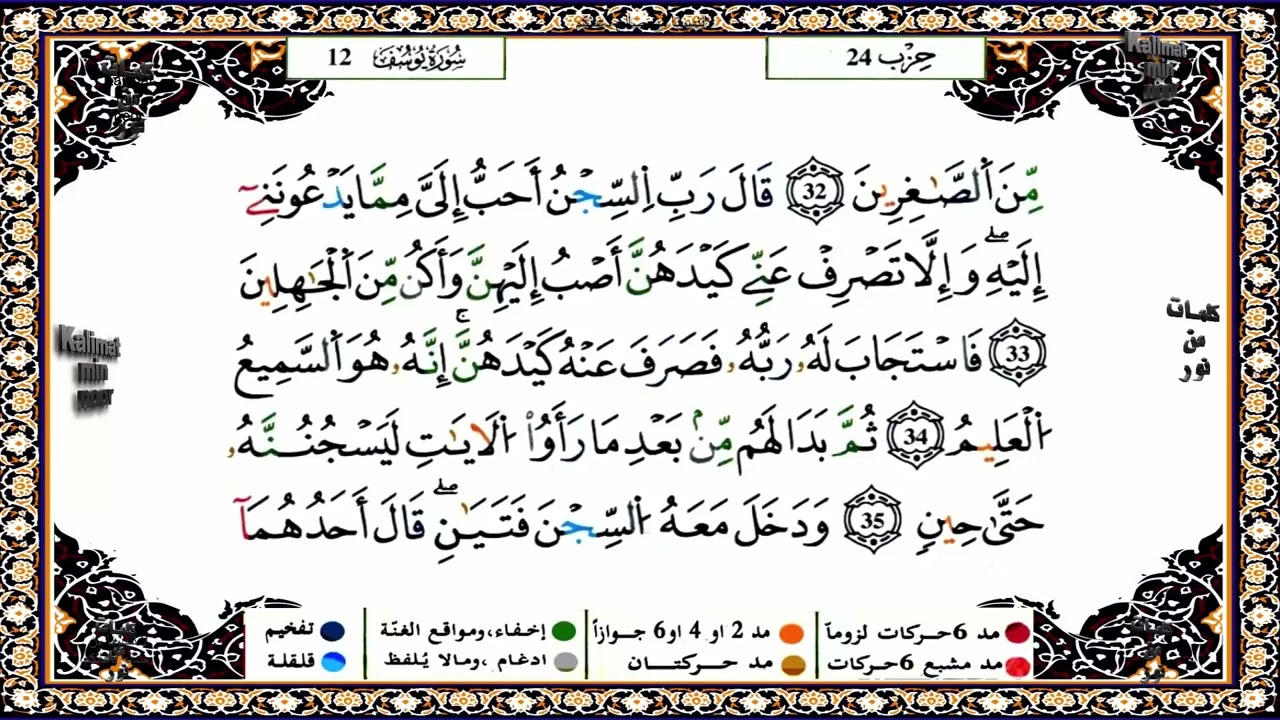 حِزْب 24
سُورَةُ يُوسُفَ 12
مِّنَ اَ۬لصَّٰغِرِينَ 32 قَالَ رَبِّ اِ۬لسِّجْنُ أَحَبُّ إِلَيَّ مِمَّا يَدْعُونَنِےٓ
إِلَيْهِۖ وَإِلَّا تَصْرِفْ عَنِّے كَيْدَهُنَّ أَصْبُ إِلَيْهِنَّ وَأَكُن مِّنَ اَ۬لْجَٰهِلِينَ
33 فَاسْتَجَابَ لَهُۥ رَبُّهُۥ فَصَرَفَ عَنْهُ كَيْدَهُنَّۚ إِنَّهُۥ هُوَ اَ۬لسَّمِيعُ
اُ۬لْعَلِيمُ 34 ثُمَّ بَدَا لَهُم مِّنۢ بَعْدِ مَا رَأَوُاْ اُ۬لَايَٰتِ لَيَسْجُنُنَّهُۥ
حَتَّىٰ حِينٍ 35 وَدَخَلَ مَعَهُ اُ۬لسِّجْنَ فَتَيَٰنِۖ قَالَ أَحَدُهُمَآ
مد 6 حركات لزوماً
مد 2 او 4 او 6 جوازاً
إخفاء، ومواقع الغنّة
تفخيم
مد مشبع 6 حركات
مد حركتان
ادغام، ومالا يُلفظ
قلقلة
Kalimat
min
noor
كلمات
من
نور
Kalimat
min
noor